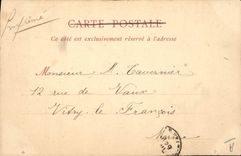 Imprimé
CARTE POSTALE
Ce côté est exclusivement réservé à l'adresse
Monsieur L. Tavernier
12 rue de Vaux
Vitry le François
Marne